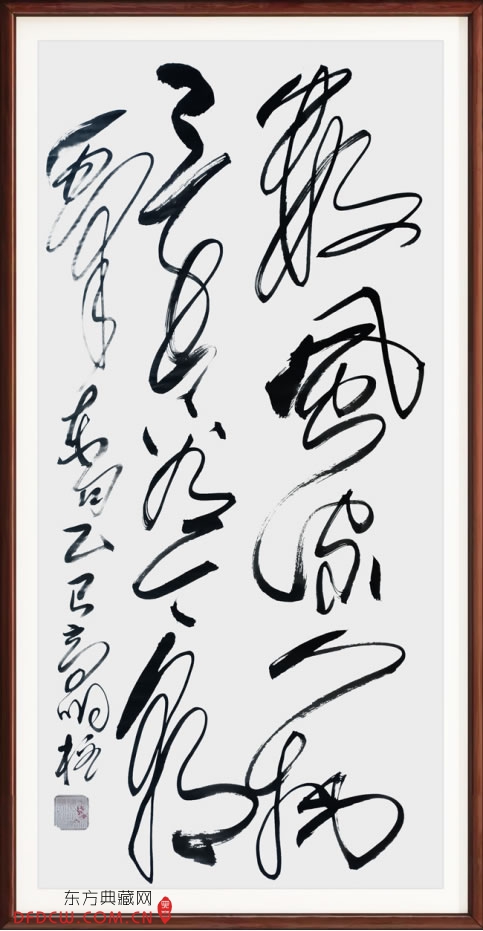 數風流人物
還看今朝
東句乙巳高明柱
东方典藏网
DFDCW.COM.CN